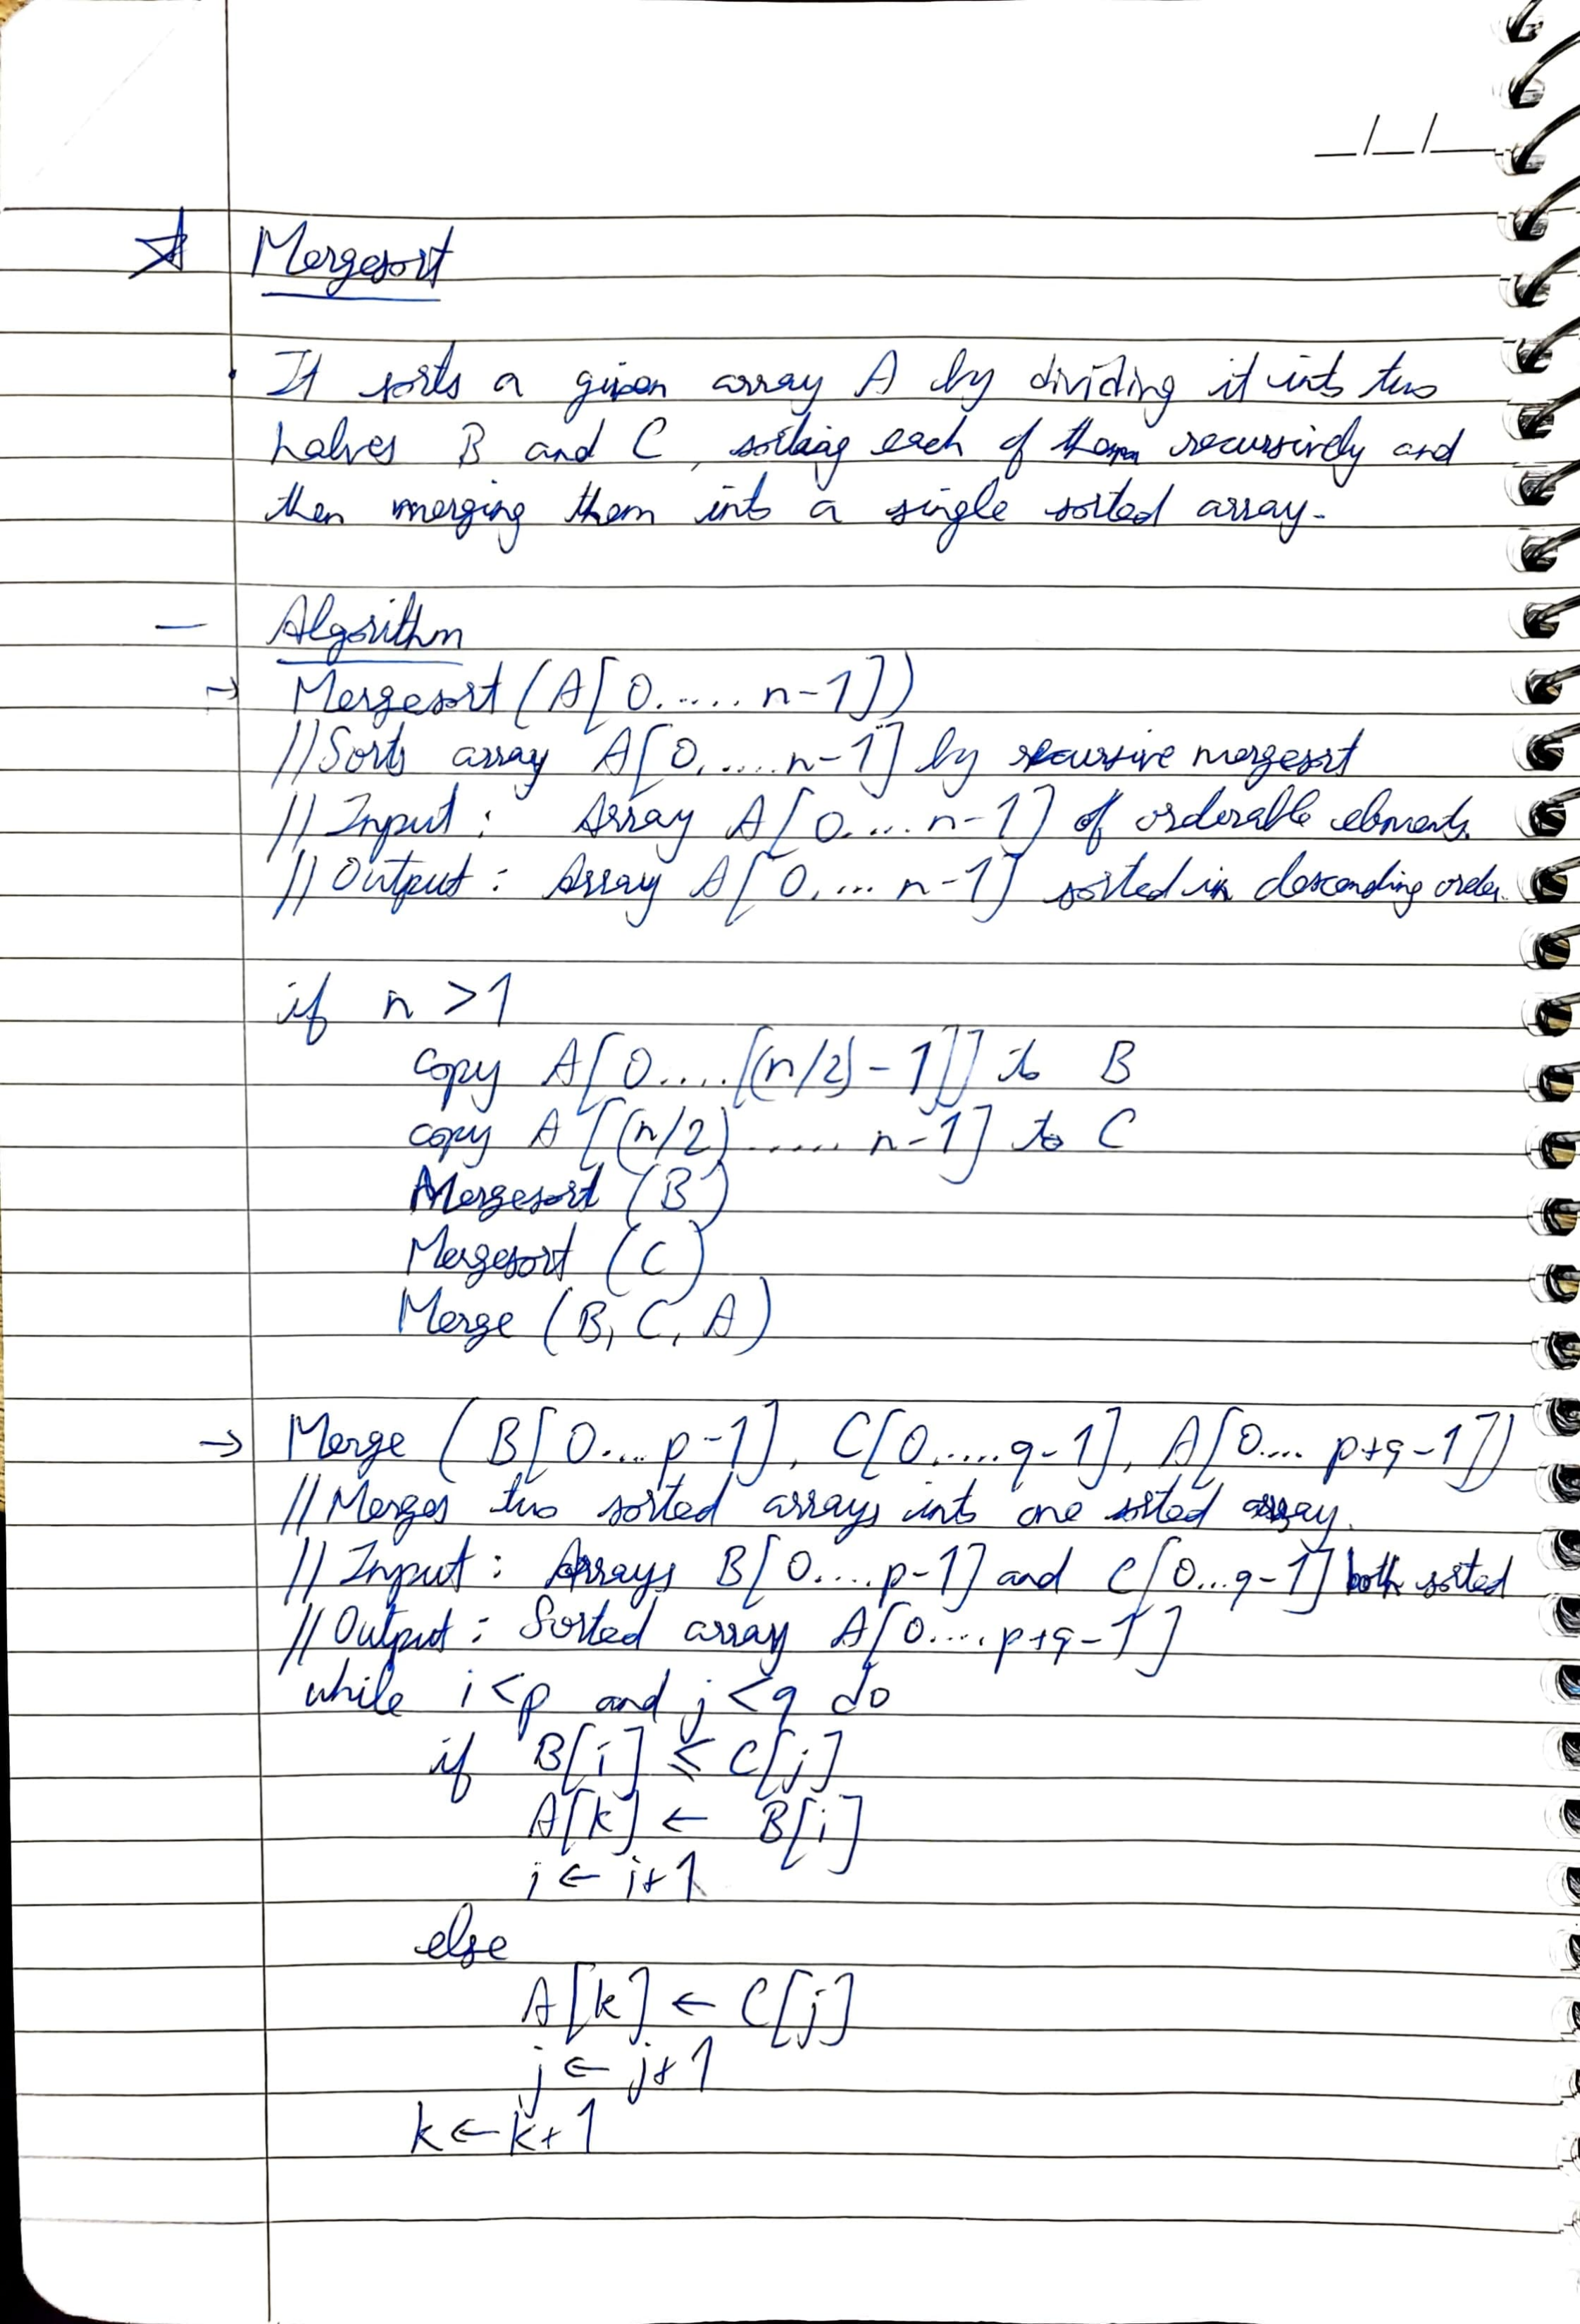 _/_/_
Mergesort
It sorts a given array A by dividing it into two
halves B and C, sorting each of them recursively and
then merging them into a single sorted array.
— Algorithm
→ Mergesort (A[0..... n-1])
//Sorts array A[0.....n-1] by recursive mergesort
// Input : Array A[0....n-1] of orderable elements.
// Output : Array A[0.... n-1] sorted in descending order.
if n >1
copy A[0....[(n/2)-1]] to B
copy A[(n/2)...... n-1] to C
Mergesort (B)
Mergesort (C)
Merge (B, C, A)
→ Merge (B[0....p-1], C[0.....q-1], A[0.... p+q-1])
//Merges two sorted arrays into one sorted array.
// Input : Arrays B[0....p-1] and C[0...q-1] both sorted
// Output : Sorted array A[0....p+q-1]
while i<p and j<q do
if B[i] ≤ C[j]
A[k] ← B[i]
i ← i+1
else
A[k] ← C[j]
j ← j+1
k ← k+1